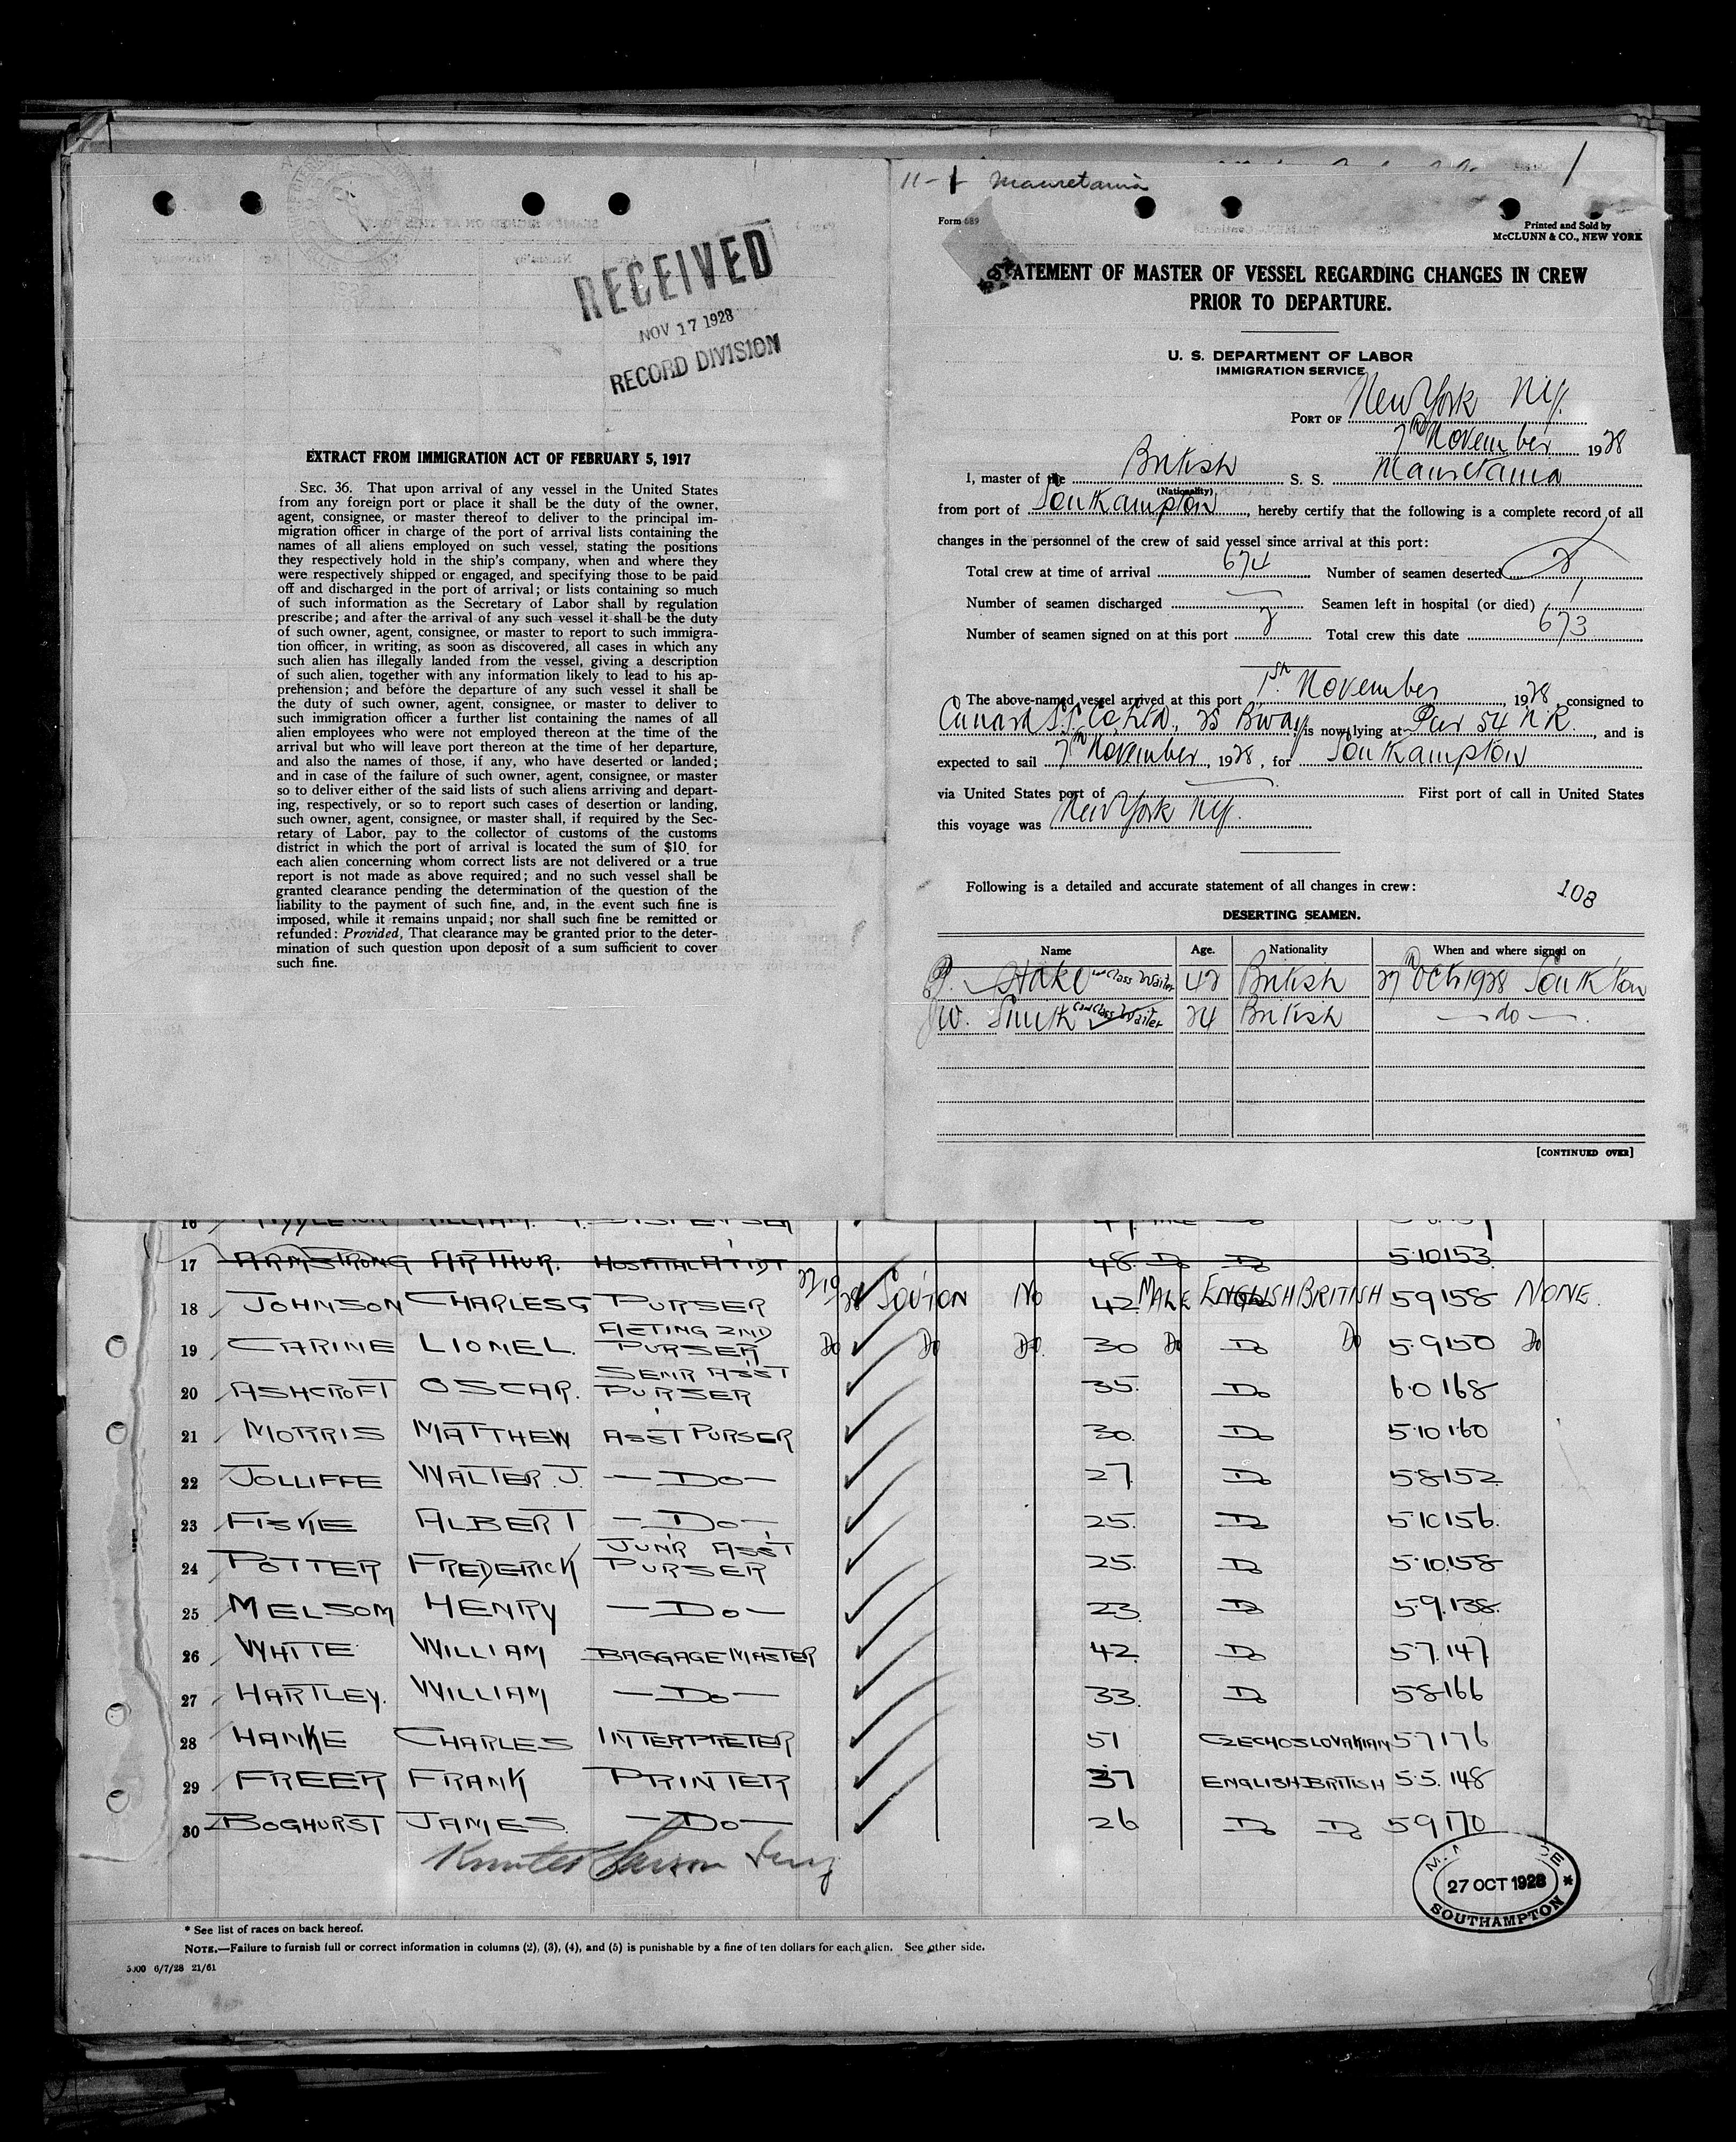 RECEIVED
NOV 17 1928
RECORD DIVISION
EXTRACT FROM IMMIGRATION ACT OF FEBRUARY 5, 1917
SEC. 36. That upon arrival of any vessel in the United States
from any foreign port or place it shall be the duty of the owner,
agent, consignee, or master thereof to deliver to the principal im-
migration officer in charge of the port of arrival lists containing the
names of all aliens employed on such vessel, stating the positions
they respectively hold in the ship's company, when and where they
were respectively shipped or engaged, and specifying those to be paid
off and discharged in the port of arrival; or lists containing so much
of such information as the Secretary of Labor shall by regulation
prescribe; and after the arrival of any such vessel it shall be the duty
of such owner, agent, consignee, or master to report to such immigra-
tion officer, in writing, as soon as discovered, all cases in which any
such alien has illegally landed from the vessel, giving a description
of such alien, together with any information likely to lead to his ap-
prehension; and before the departure of any such vessel it shall be
the duty of such owner, agent, consignee, or master to deliver to
such immigration officer a further list containing the names of all
alien employees who were not employed thereon at the time of the
arrival but who will leave port thereon at the time of her departure,
and also the names of those, if any, who have deserted or landed;
and in case of the failure of such owner, agent, consignee, or master
so to deliver either of the said lists of such aliens arriving and depart-
ing, respectively, or so to report such cases of desertion or landing,
such owner, agent, consignee, or master shall, if required by the Sec-
retary of Labor, pay to the collector of customs of the customs
district in which the port of arrival is located the sum of $10 for
each alien concerning whom correct lists are not delivered or a true
report is not made as above required; and no such vessel shall be
granted clearance pending the determination of the question of the
liability to the payment of such fine, and, in the event such fine is
imposed, while it remains unpaid; nor shall such fine be remitted or
refunded: Provided, That clearance may be granted prior to the deter-
mination of such question upon deposit of a sum sufficient to cover
such fine.
11-1 Mauretania
Form 689
Printed and Sold by
McCLUNN & CO., NEW YORK
STATEMENT OF MASTER OF VESSEL REGARDING CHANGES IN CREW
PRIOR TO DEPARTURE.
U. S. DEPARTMENT OF LABOR
IMMIGRATION SERVICE
PORT OF New York NY.
7th November 1928
I, master of the British S. S. Mauretania
(Nationality)
from port of Southampton, hereby certify that the following is a complete record of all
changes in the personnel of the crew of said vessel since arrival at this port:
Total crew at time of arrival 674 Number of seamen deserted 2
Number of seamen discharged — Seamen left in hospital (or died) 1
Number of seamen signed on at this port 2 Total crew this date 673
The above-named vessel arrived at this port 1st November, 1928, consigned to
Cunard S.S. Co Ltd., 25 Bway, is now lying at Pier 54 N.R., and is
expected to sail 7th November, 1928, for Southampton
via United States port of — First port of call in United States
this voyage was New York NY.
Following is a detailed and accurate statement of all changes in crew:
108
DESERTING SEAMEN.
Name Age. Nationality When and where signed on
Stake Class Waiter 42 British 27th Oct 1928 Southton
W. Smith Class Waiter 24 British —do—
[CONTINUED OVER]
17 ARMSTRONG ARTHUR. HOSPITAL ATTDT 48 Do Do 5·10 153
18 JOHNSON CHARLES G PURSER 27/10/28 SOU'TON NO 42 MALE ENGLISH BRITISH 5 9 158 NONE.
19 CARINE LIONEL. ACTING 2ND PURSER Do Do Do 30 Do Do Do 5·9 150 Do
20 ASHCROFT OSCAR. SENR ASST PURSER 35. Do 6·0 168
21 MORRIS MATTHEW ASST PURSER 30. Do 5·10 160
22 JOLLIFFE WALTER. J. —Do— 27. Do 5·8 152
23 FISKE ALBERT —Do— 25. Do 5·10 156.
24 POTTER FREDERICK JUNR ASST PURSER 25. Do 5·10 158
25 MELSOM HENRY —Do— 23. Do 5·9. 138.
26 WHITE WILLIAM BAGGAGE MASTER 42. Do 5·7. 147
27 HARTLEY. WILLIAM —Do— 33. Do 5·8 166
28 HANKE CHARLES INTERPRETER 51 CZECHOSLOVAKIAN 5·7 176
29 FREER FRANK PRINTER 37 ENGLISH BRITISH 5·5. 148
30 BOGHURST JAMES. —Do— 26 Do Do 5 9 170
27 OCT 1928
SOUTHAMPTON
* See list of races on back hereof.
NOTE.—Failure to furnish full or correct information in columns (2), (3), (4), and (5) is punishable by a fine of ten dollars for each alien. See other side.
5000 6/7/28 21/61